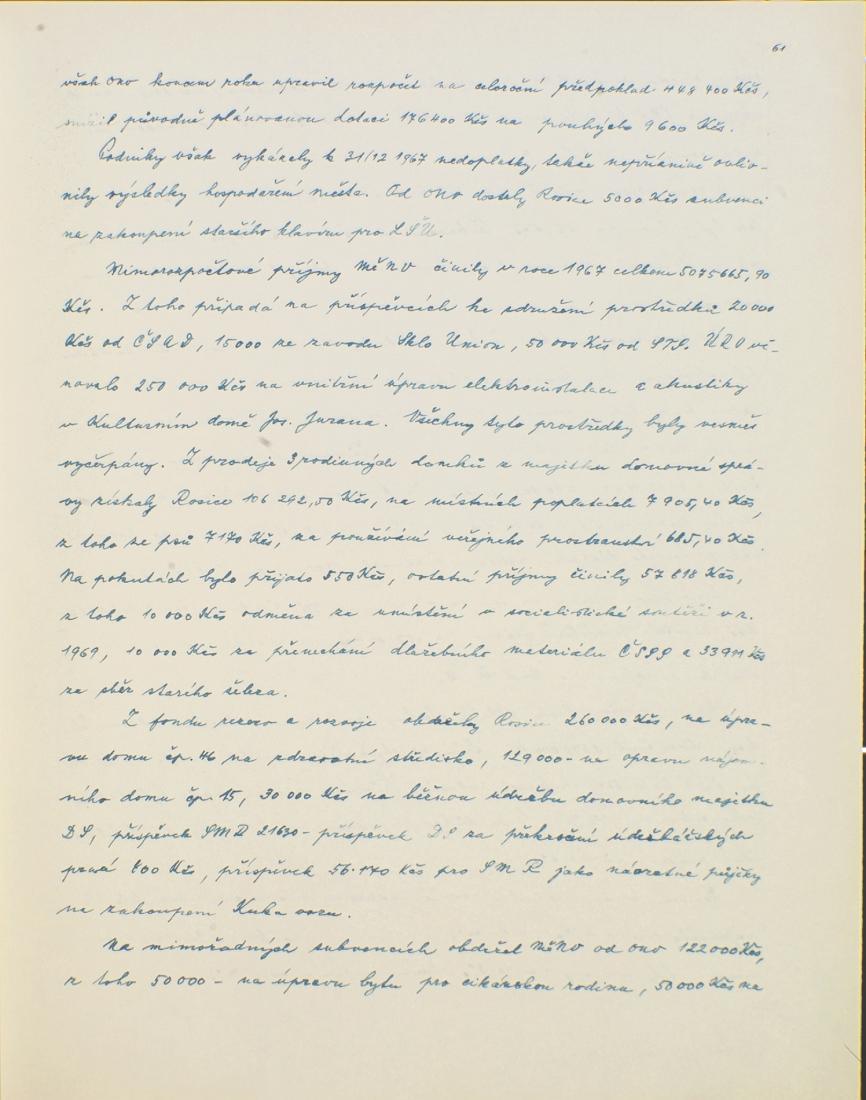 61
však ONV koncem roku upravil rozpočet na celoroční předpoklad 448 400 Kčs,
snížil původně plánovanou dotaci 176400 Kčs na pouhých 9600 Kčs.
Podniky však vykázaly k 31/12 1967 nedoplatky, takže nepříznivě ovliv-
nily výsledky hospodaření města. Od ONV dostaly Rosice 5000 Kčs subvenci
na zakoupení staršího klavíru pro LŠU.
Mimorozpočtové příjmy MěNV činily v roce 1967 celkem 5075665,90
Kčs. Z toho připadá na příspěvcích ke sdružení prostředků 20000
Kčs od ČSAD, 15000 ze závodu Sklo Union, 50 000 Kčs od STS. ÚRO vě-
novalo 250 000 Kčs na vnitřní úpravu elektroinstalace a akustiky
v Kulturním domě Jos. Jurana. Všechny tyto prostředky byly vesměs
vyčerpány. Z prodeje 3 rodinných domků z majetku domovní sprá-
vy získaly Rosice 106 292,50 Kčs, na místních poplatcích 7 905,40 Kčs,
z toho ze psů 7170 Kčs, za používání veřejného prostranství 685,40 Kčs.
Na pokutách bylo přijato 550 Kčs, ostatní příjmy činily 57 818 Kčs,
z toho 10 000 Kčs odměna za umístění v socialistické soutěži v r.
1969, 10 000 Kčs za přenechání dlažebního materiálu ČSSS a 33911 Kčs
za sběr starého železa.
Z fondu rezerv a rozvoje obdržely Rosice 260 000 Kčs, na úpra-
vu domu čp. 46 na zdravotní středisko, 129000- na opravu nájem-
ního domu čp. 15, 30 000 Kčs na běžnou údržbu domovního majetku
DS, příspěvek SMR 21630- příspěvek DS za překročení údržbářských
prací 800 Kčs, příspěvek 56.170 Kčs pro SMR jako návratné půjčky
na zakoupení Kuka vozu.
Na mimořádných subvencích obdržel MěNV od ONV 122000 Kčs,
z toho 50 000 - na úpravu bytu pro cikánskou rodinu, 50 000 Kčs na